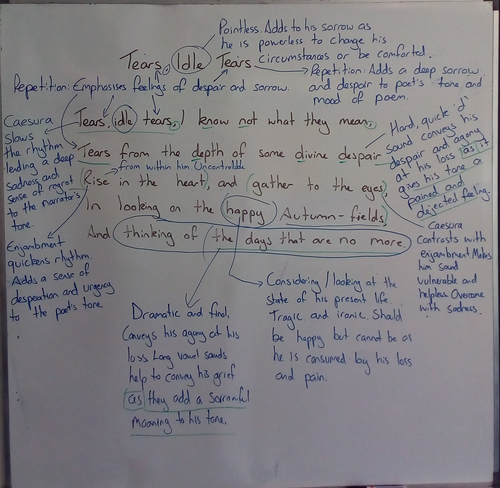 Pointless. Adds to his sorrow as
he is powerless to change his
circumstances or be comforted.
Tears, Idle Tears
Repetition: Adds a deep sorrow
and despair to poet's tone and
mood of poem.
Repetition: Emphasises feelings of despair and sorrow.
Caesura
Slows
the rhythm
lending a deep
sadness and
sense of regret
to the narrator's
tone.
Enjambment
quickens rhythm.
Adds a sense of
desperation and urgency
to the poet's tone.
Tears, idle tears, I know not what they mean,
Tears from the depth of some divine despair
from within him. Uncontrollable
Rise in the heart, and gather to the eyes,
In looking on the happy Autumn-fields,
And thinking of the days that are no more.
Hard, quick 'd'
sound conveys his
despair and agony
at his loss as it
gives his tone a
pained and
dejected feeling.
Caesura
Contrasts with
enjambment. Makes
him sound
vulnerable and
helpless. Overcome
with sadness.
Dramatic and final.
Conveys his agony at his
loss. Long vowel sounds
help to convey his grief
as they add a sorrowful
moaning to his tone.
Considering / looking at the
state of his present life.
Tragic and ironic. Should
be happy but cannot be as
he is consumed by his loss
and pain.